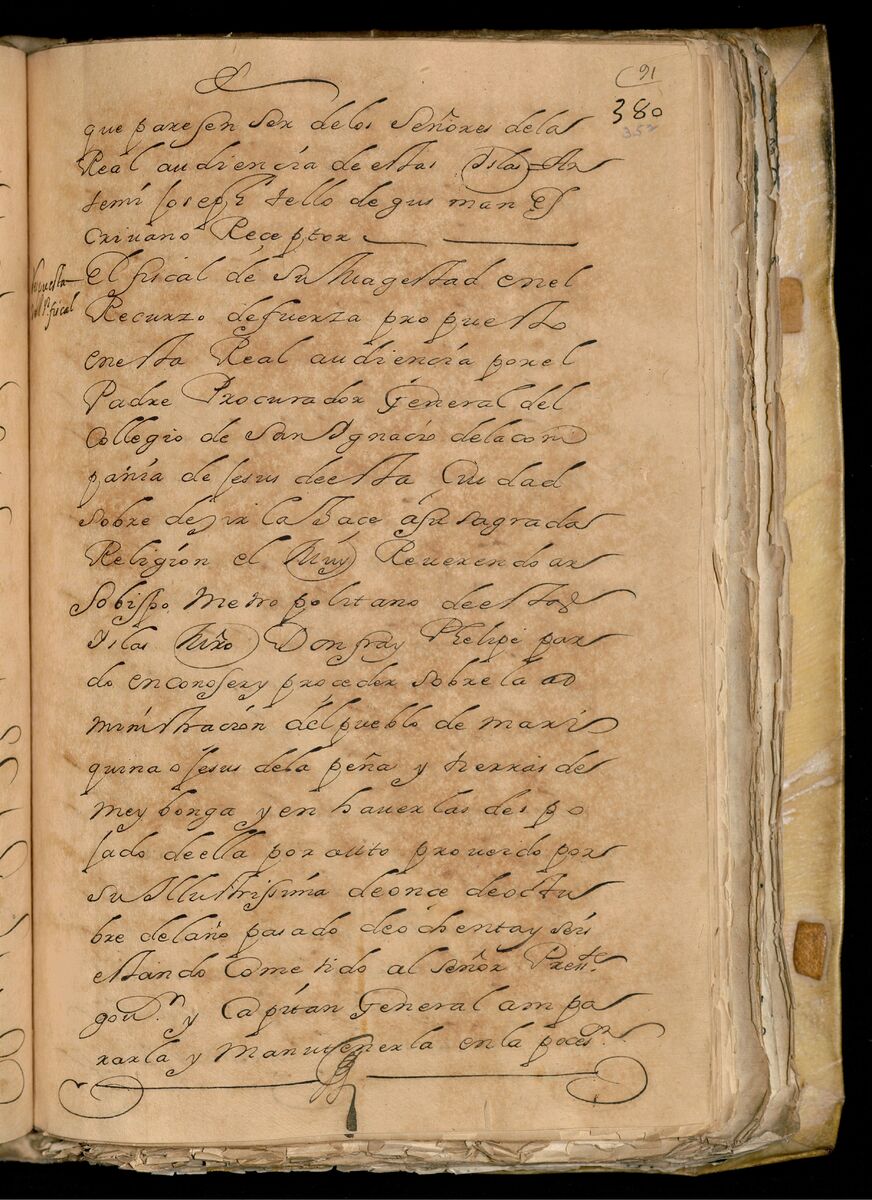 91
380
352
que paresen ser delos Señores dela
Real audiencia de estas Islas An
temi Joseph tello de gusman Es
crivano Receptor
Respuesta
del Sr. fiscal
El fiscal de su Magestad en el
Recurzo de fuerza propuesto
en esta Real audiencia por el
Padre Procurador General del
Collegio de San Ygnacio dela com
pañia de Jesus de esta Ciudad
sobre desir la hace á su sagrada
Religión el Muy Reverendo ar
sobispo Metropolitano de estas
Yslas Mro Don fray Phelipe par
do en conoser y proceder sobre la ad
ministración del pueblo de mari
quina o Jesus dela peña y tierras de
meybonga y en haverlas des po
jado de ella por auto proveido por
su Illustrissima de once de octu
bre del año pasado de óchenta y séis
estando Cometido al señor Presste
govr. y Capitan General ampa
rarla y Manutenerla en la poces.on